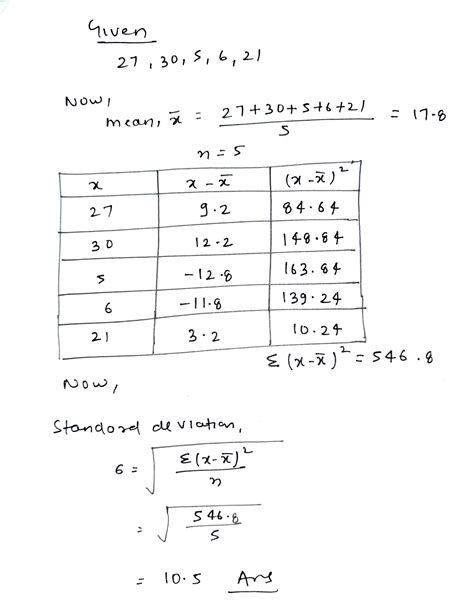 Given
27, 30, 5, 6, 21
Now,
mean, x̄ = 27+30+5+6+21 / 5 = 17.8
n = 5
x x - x̄ (x - x̄)²
27 9.2 84.64
30 12.2 148.84
5 -12.8 163.84
6 -11.8 139.24
21 3.2 10.24
Σ (x - x̄)² = 546.8
Now,
Standard deviation,
6 = √ Σ(x - x̄)² / n
= √ 546.8 / 5
= 10.5 Ans